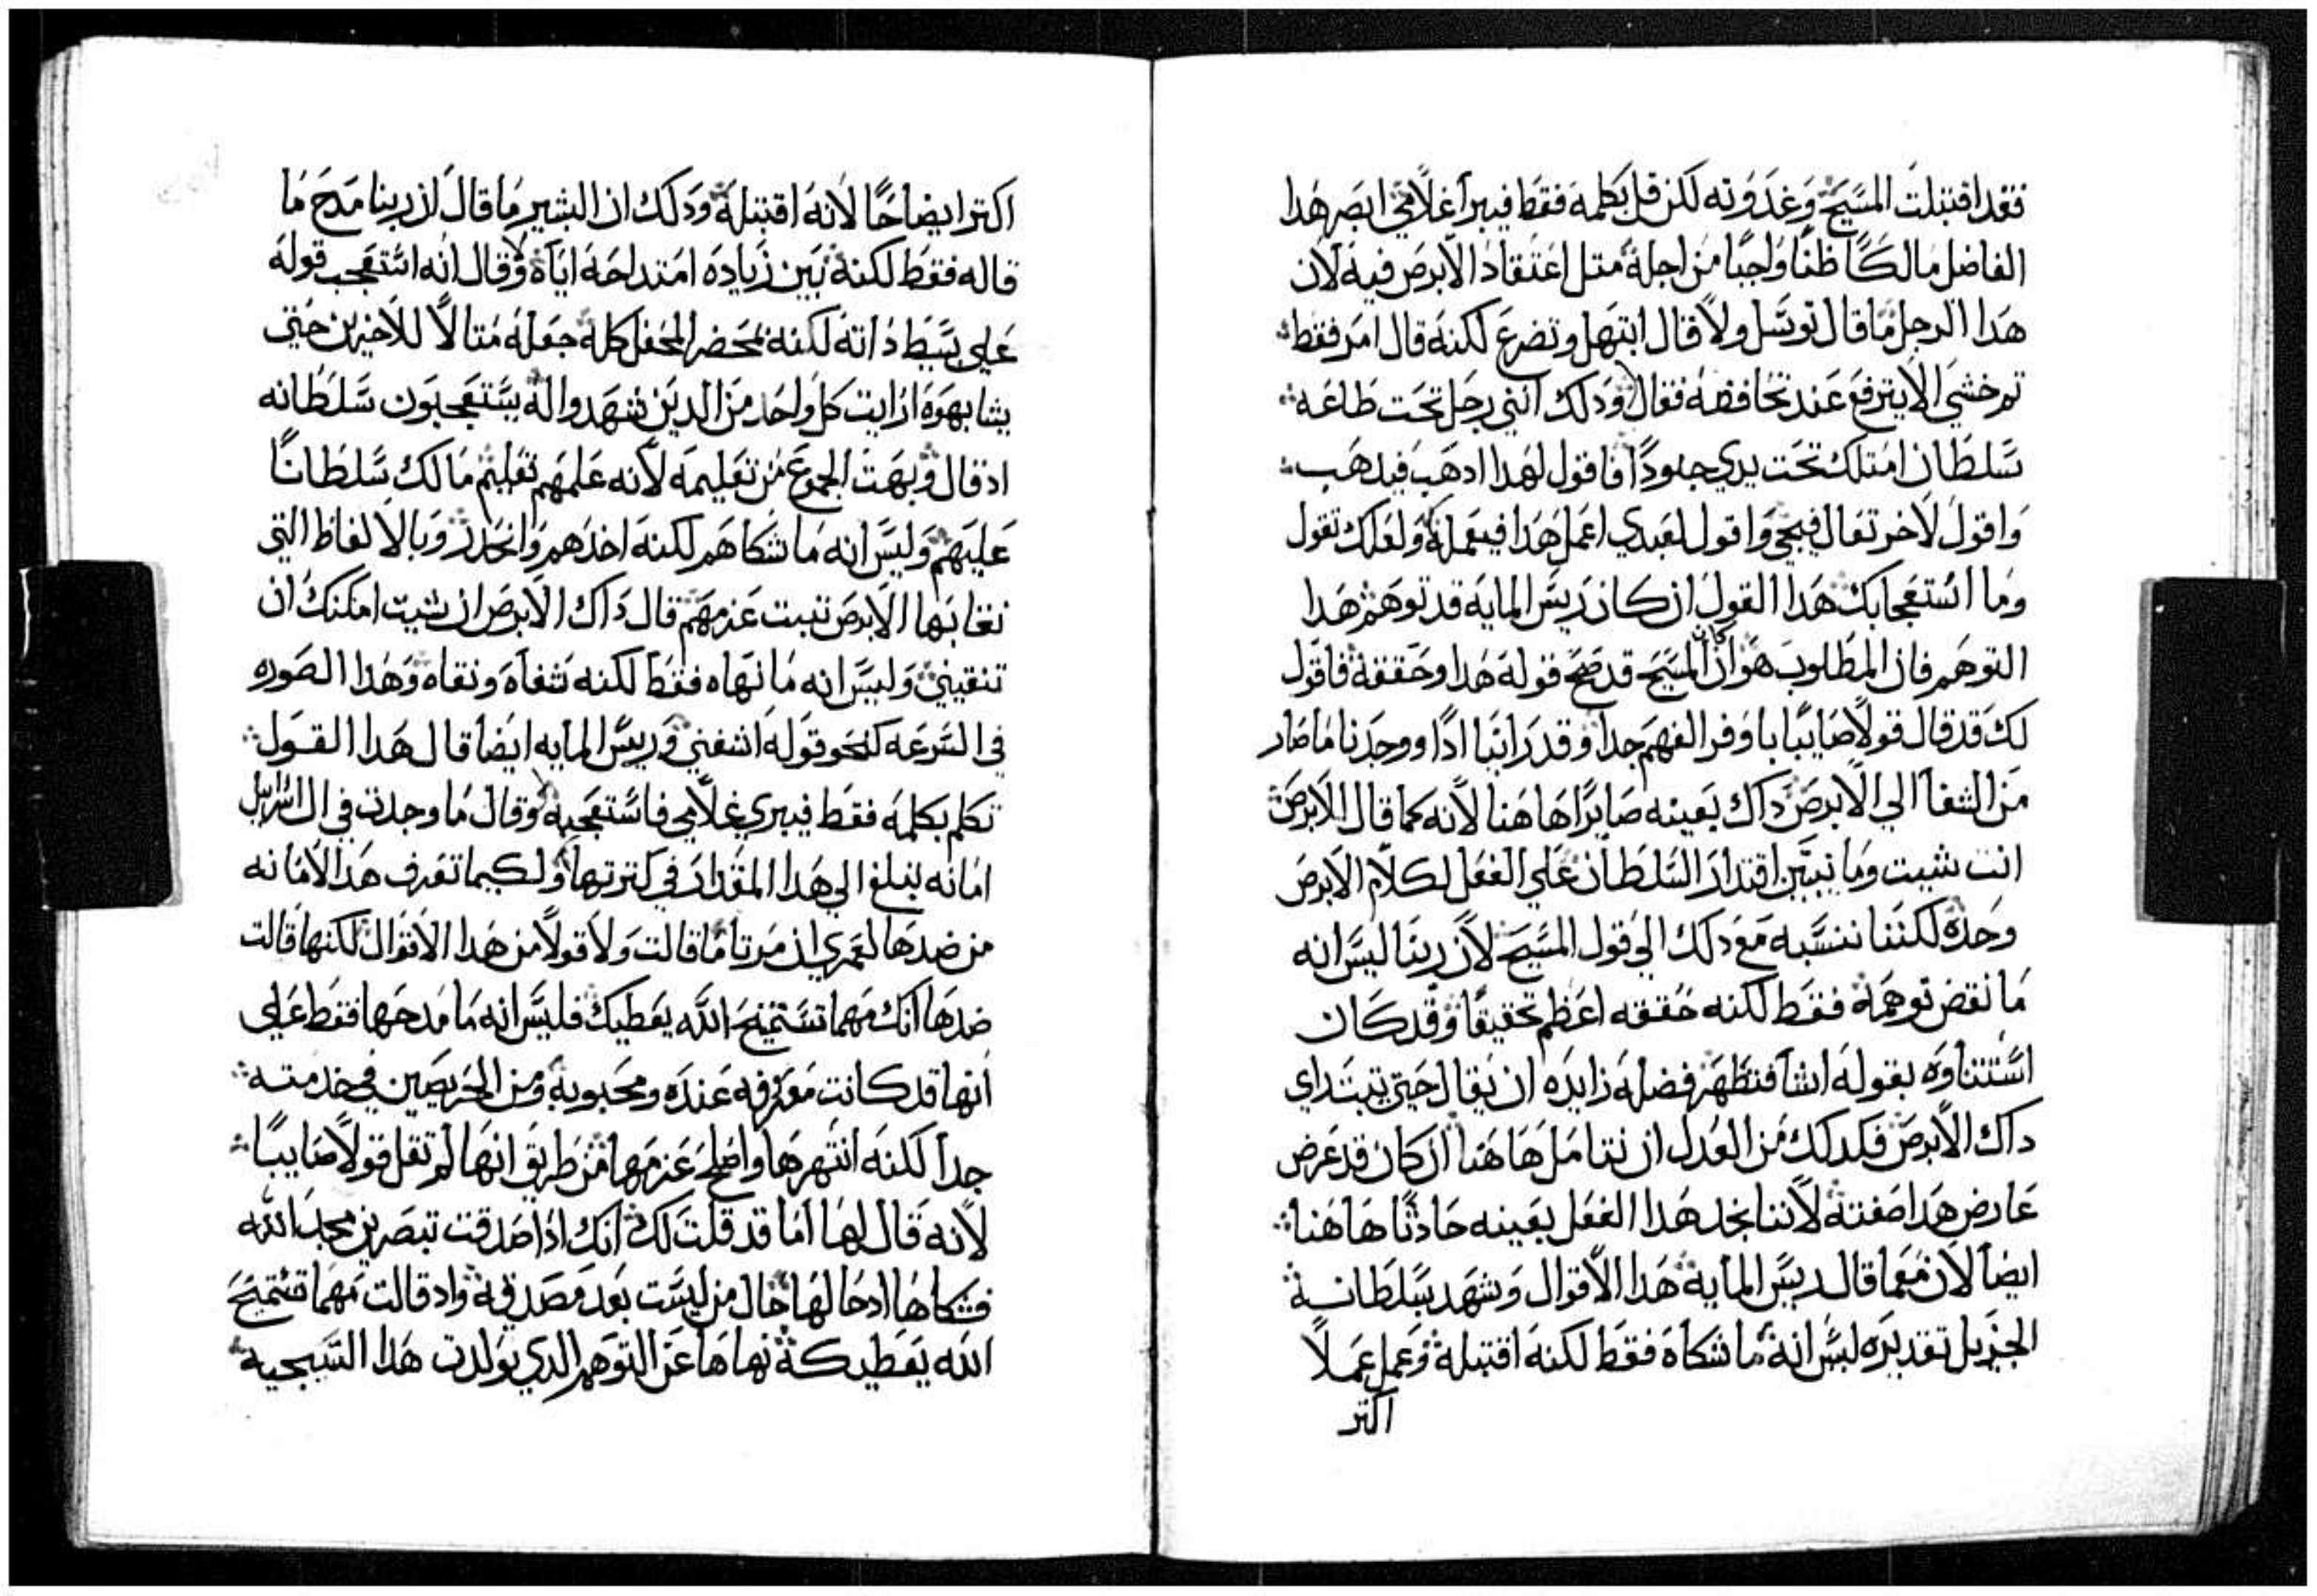 فقد اقتبلت المسيح وغدوته لكن قل بكلمه فقط فيبرا غلامي ابصر هدا
الفاضل مالكًا ظنًا واجبًا من اجله متل اعتقاد الابرص فيه لان
هدا الرجل ما قال توسل ولا قال ابتهل وتضرع لكنه قال امر فقط
تم خشي الا يترفع عند تخافضه فقال ودلك انني رجل تحت طاعه
سلطان امتلك تحت يدي جنودًا فاقول لهدا ادهب فيدهب
واقول لاخر تعال فيجي واقول لعبدي اعمل هدا فيعمله ولعلك تقول
وما استعجابك هدا القول ان كان ريس المايه قد توهم هدا
التوهم فان المطلوب هو ان كان المسيح قد صحح قوله هدا وحققه فاقول
لك قد قال قولًا صايبًا يا وفر الفهم جدا وقد راينا ادًا ووجدنا ما صار
من الشفا الي الابرص داك بعينه صايرًا هاهنا لانه كما قال الابرص
انت شيت وما نبين اقتدار السلطان علي الفعل لكلام الابرص
وحده لكننا ننسبه مع دلك الي قول المسيح لان ربنا ليس انه
ما نقض توهمه فقط لكنه حققه اعظم تحقيقًا وقد كان
استتناوه بقوله اشا فتطهر فضله زايده ان يقال حتي يتبت راي
داك الابرص فكدلك من العدل ان نتامل هاهنا ان كان قد عرض
عارض هدا صفته لاننا نجد هدا الفعل بعينه حادثًا هاهنا
ايضا لان معما قال ريس المايه هدا الاقوال وشهد بسلطانه
الجزيل تقديره ليس انه ما شكاه فقط لكنه اقتبله وعمل عملًا
اكتر
اكتر ايضاحًا لانه اقتبله ودلك ان البشير ما قال ان ربنا مدح ما
قاله فقط لكنه بين زياده امتداحه اياه وقال انه استعجب قوله
علي بسيط داته لكنه بمحضر المحفل كله جعله متالًا للاخرين حتي
يشابهوه ارايت كل واحد من الدين شهدوا له يستعجبون سلطانه
اد قال وبهت الجموع من تعليمه لانه علمهم تعليم مالك سلطانًا
عليهم وليس انه ما شكاهم لكنه اخدهم وانحدر وبالالفاظ التي
نقا بها الابرص تبت عزمهم قال داك الابرص ان شيت امكنك ان
تنقيني وليس انه ما نهاه فقط لكنه شفاه ونقاه وهدا الصوره
في السرعه كنحو قوله اشفني وريس المايه ايضا قال هدا القول
تكلم بكلمه فقط فيبري غلامي فاستعجبه وقال ما وجدت في ال اسراييل
امانه تبلغ الي هدا المقدار في كترتها ولكيما تعرف هدا الامانه
من ضدها لعمري ان مرتا ما قالت ولا قولًا من هدا الاقوال لكنها قالت
ضدها انك مهما تستمنح الله يعطيك فليس انه ما مدحها فقط علي
انها قد كانت معترفه عنده ومحبوبه ومن الحريصين في خدمته
جدا لكنه انتهرها واصلح عزمها من طريق انها لم تقل قولًا صايبًا
لانه قال لها اما قد قلت لك انك ادا صدقت تبصرين مجد الله
فشكاها ادحالها حال من ليست بعد مصدقه واد قالت مهما تستمنح
الله يعطيكه نهاها عن التوهم الدي يولدت هدا السجيه